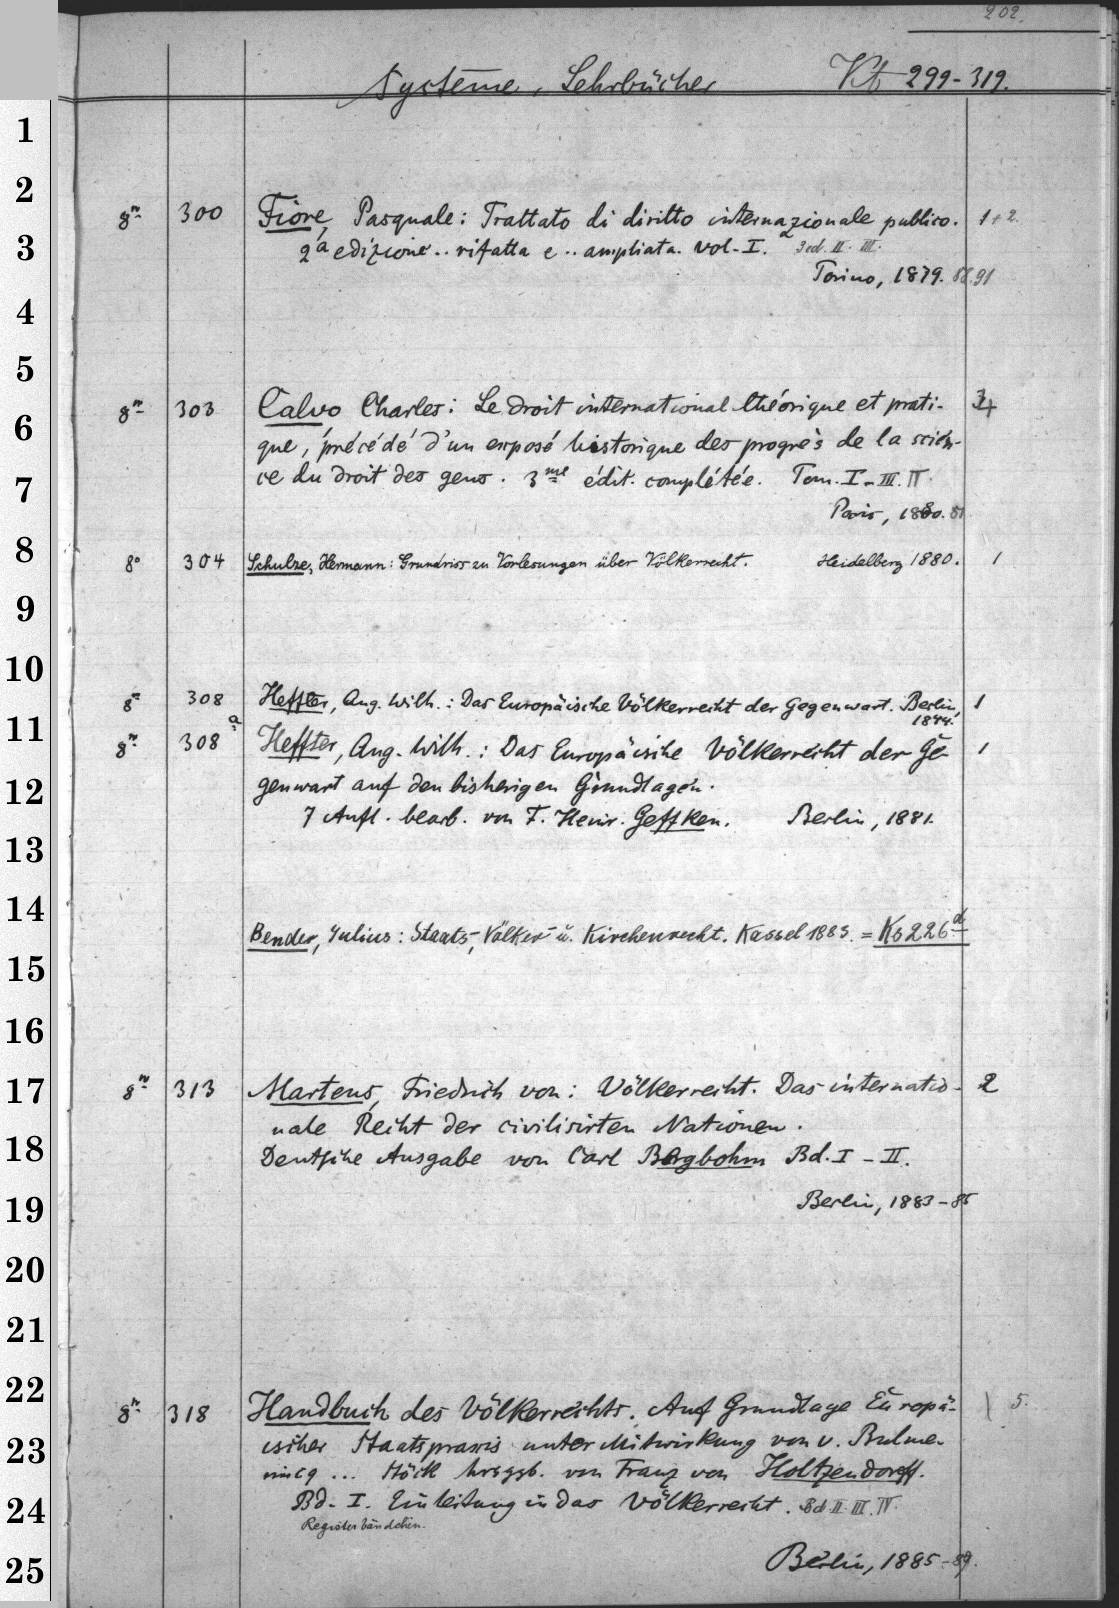 202.
Systeme, Lehrbücher Kb 299-319.
8º 300 Fiore, Pasquale: Trattato di diritto internazionale publico. 1+2.
2a edizione .. rifatta e .. ampliata. vol. I. 3 ed. II. III.
Torino, 1879. 88.91
8º 303 Calvo Charles: Le droit international théorique et prati- 4
que, précédé d'un exposé historique des progrès de la scien-
ce du droit des gens. 3me édit. complétée. Tom. I-III. IV.
Paris, 1880. 81
8º 304 Schulze, Hermann: Grundriss zu Vorlesungen über Völkerrecht. Heidelberg 1880. 1
8º 308 Heffter, Aug. Wilh.: Das Europäische Völkerrecht der Gegenwart. Berlin, 1
1844.
8º 308a Heffter, Aug. Wilh.: Das Europäische Völkerrecht der Ge- 1
genwart auf den bisherigen Grundlagen.
7 Aufl. bearb. von F. Heinr. Geffken. Berlin, 1881.
Bender, Julius: Staats-, Völker- u. Kirchenrecht. Kassel 1883. = Ks 226d
8º 313 Martens, Friedrich von: Völkerrecht. Das internatio- 2
nale Recht der civilisirten Nationen.
Deutsche Ausgabe von Carl Bergbohm Bd. I - II.
Berlin, 1883-86
8º 318 Handbuch des Völkerrechts. Auf Grundlage Europä- 5.
ischer Staatspraxis unter Mitwirkung von v. Bulme-
rincq ... Störk hrsggb. von Franz von Holtzendorff.
Bd. I. Einleitung in das Völkerrecht. Bd II. III. IV.
Registerbändchen.
Berlin, 1885-89.
1
2
3
4
5
6
7
8
9
10
11
12
13
14
15
16
17
18
19
20
21
22
23
24
25